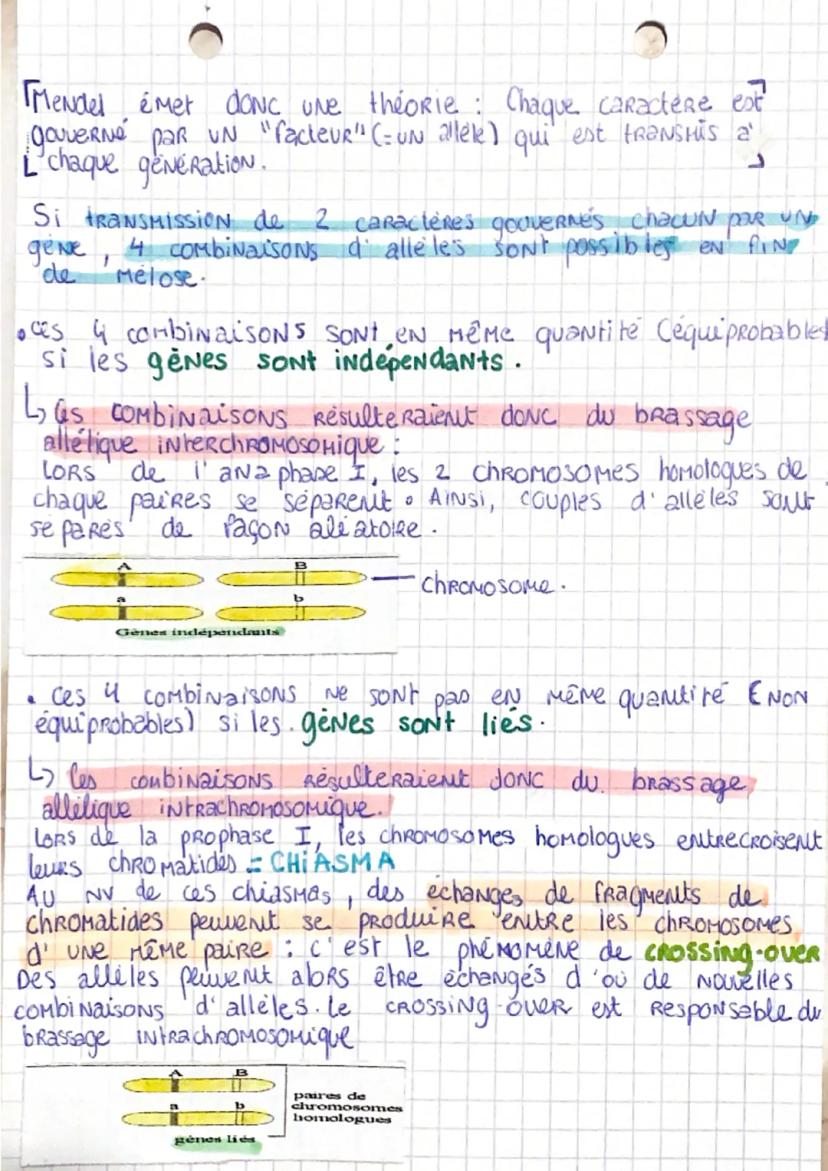 Mendel émet donc une théorie : Chaque caractère est
gouverné par un "facteur" (= un allèle) qui est transmis à
chaque génération.
Si transmission de 2 caractères gouvernés chacun par un
gène, 4 combinaisons d'allèles sont possibles en fin
de méiose.
• Ces 4 combinaisons sont en même quantité (équiprobables
si les gènes sont indépendants.
↳ Ces combinaisons résulteraient donc du brassage
allélique interchromosomique :
Lors de l'anaphase I, les 2 chromosomes homologues de
chaque paires se séparent. Ainsi, couples d'allèles sont
separés de façon aléatoire.
A B
chromosome.
a b
Gènes indépendants
• Ces 4 combinaisons ne sont pas en même quantité (non
équiprobables) si les gènes sont liés.
↳ les combinaisons résulteraient donc du brassage
allélique intrachromosomique.
Lors de la prophase I, les chromosomes homologues entrecroisent
leurs chromatides = CHIASMA
Au nv de ces chiasmas, des échanges de fragments de
chromatides peuvent se produire entre les chromosomes
d'une même paire : c'est le phénomène de CROSSING-OVER
Des allèles peuvent alors être échangés d'où de nouvelles
combinaisons d'allèles. Le crossing-over est responsable du
brassage intrachromosomique
A B
a b
paires de
chromosomes
homologues
gènes liés